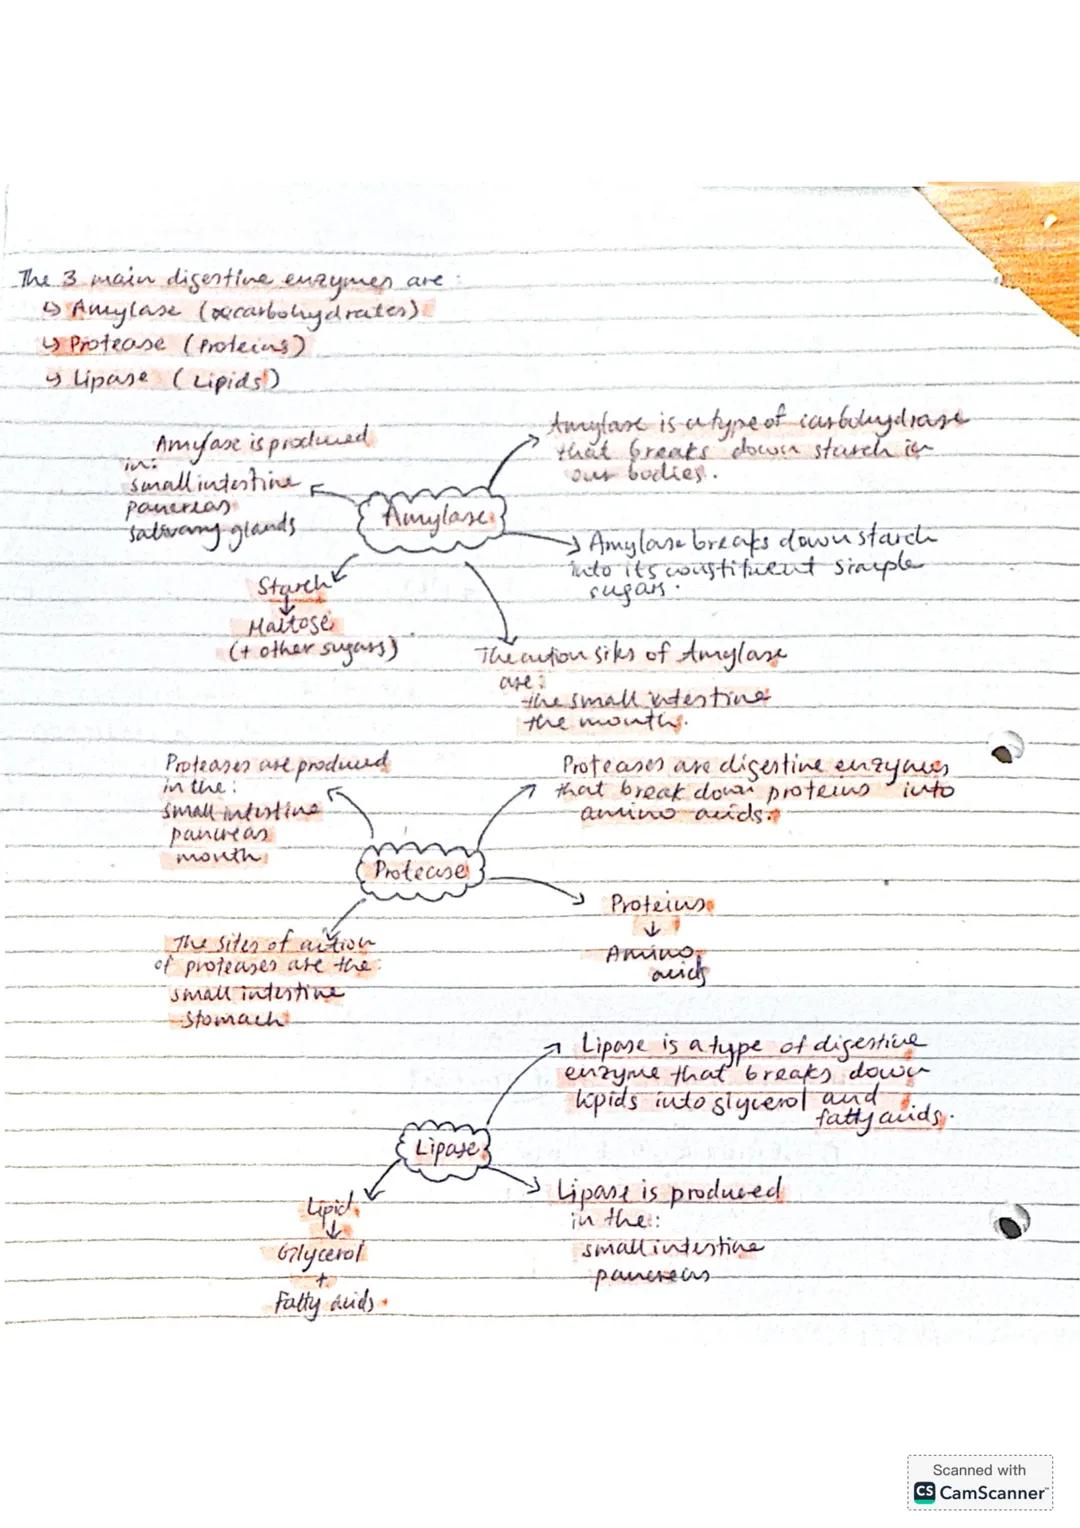 The 3 main digestive enzymes are:
↳ Amylase (carbohydrates)
↳ Protease (Proteins)
↳ Lipase (Lipids)
Amylase is produced
in:
small intestine
pancreas
salivary glands
Amylase is a type of carbohydrase
that breaks down starch in
our bodies.
Amylase
Amylase breaks down starch
into its constituent simple
sugars.
Starch
↓
Maltose
(+ other sugars)
The action sites of Amylase
are:
the small intestine
the mouth.
Proteases are produced
in the:
small intestine
pancreas
mouth
Proteases are digestive enzymes
that break down proteins into
amino acids.
Protease
Proteins
↓
Amino
acids
The sites of action
of proteases are the:
small intestine
Stomach
Lipase is a type of digestive
enzyme that breaks down
lipids into glycerol and
fatty acids.
Lipase
Lipid
↓
Glycerol
+
Fatty acids.
Lipase is produced
in the:
small intestine
pancreas
Scanned with
CS CamScanner